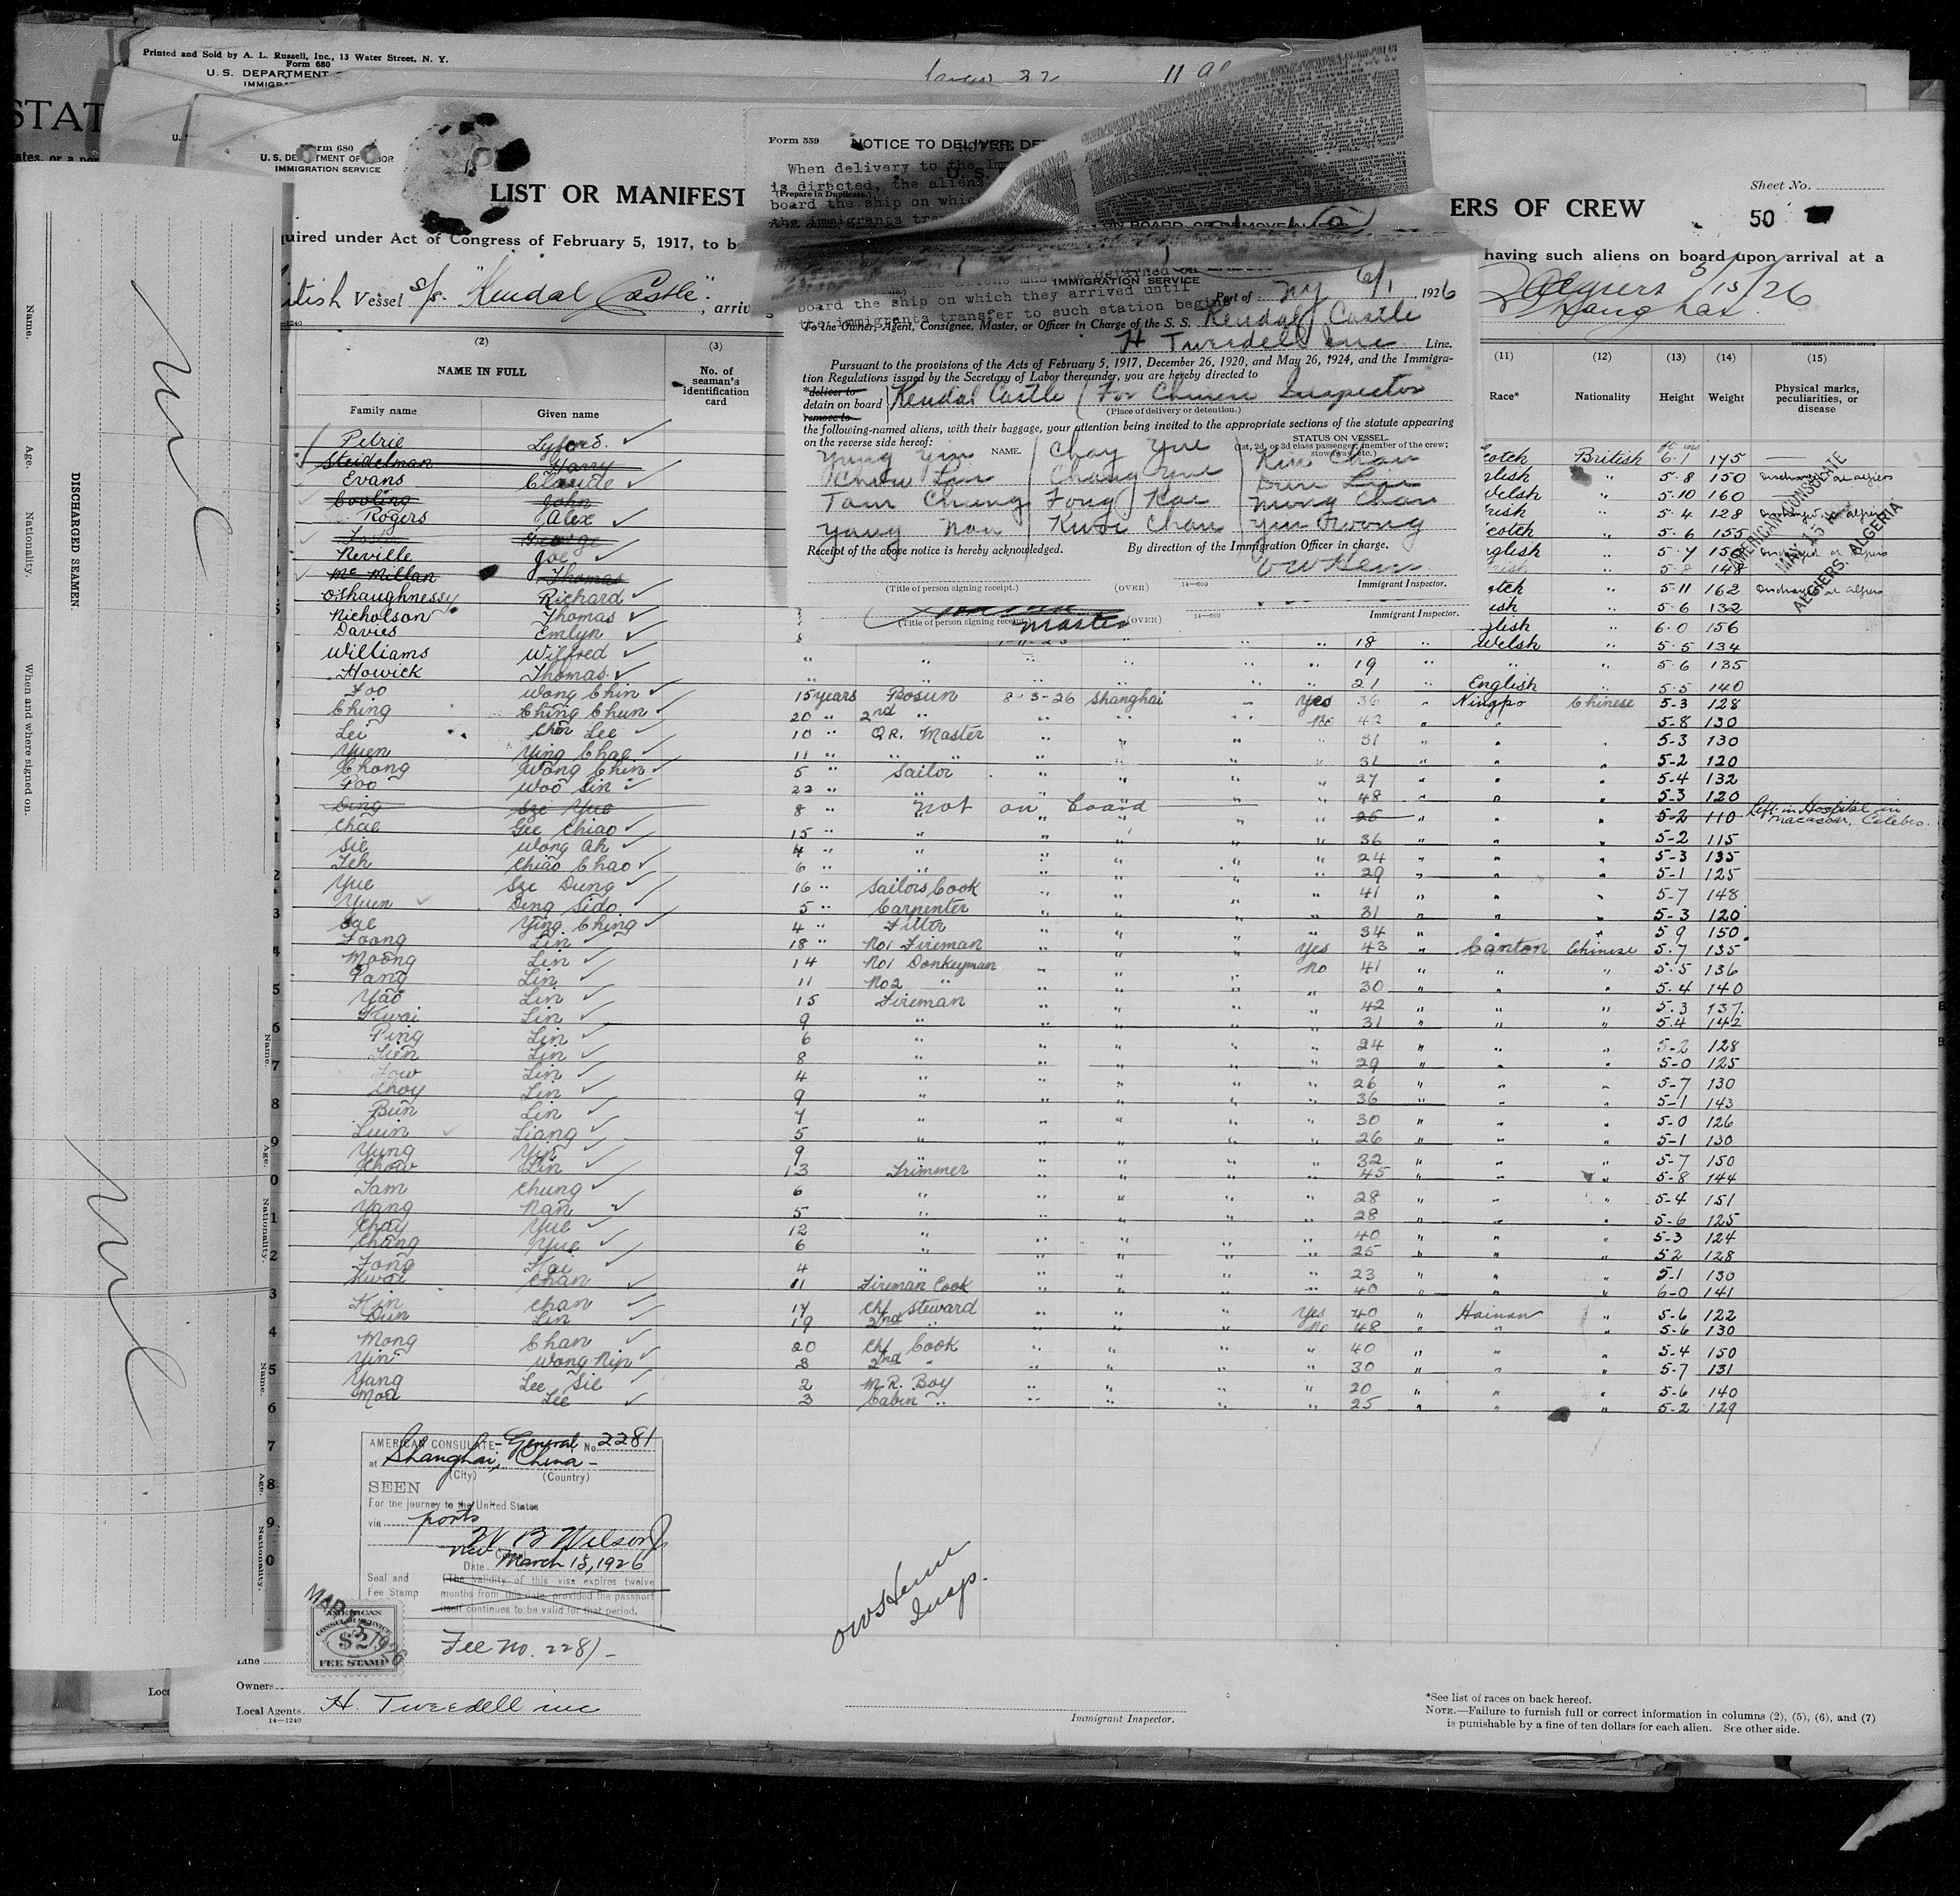 Printed and Sold by A. L. Russell, Inc., 13 Water Street, N. Y.
Form 680
U. S. DEPARTMENT
STAT
Form 680
U. S. DEPARTMENT OF LABOR
IMMIGRATION SERVICE
LIST OR MANIFEST
ERS OF CREW
Sheet No.
50
uired under Act of Congress of February 5, 1917, to b
having such aliens on board upon arrival at a
itish Vessel S/S. "Kendal Castle", arriv
Algiers 5/15/26
Shanghai
Form 559
NOTICE TO DELIVER, DE
When delivery to the Imm
is directed, the aliens
(Prepare in Duplicate.)
board the ship on whic
the immigrants tra
IMMIGRATION SERVICE
board the ship on which they arrived until
the immigrants transfer to such station begins
Port of NY 6/1, 1926
To the Owner, Agent, Consignee, Master, or Officer in Charge of the S. S. Kendal Castle
H Tweedell Inc Line.
Pursuant to the provisions of the Acts of February 5, 1917, December 26, 1920, and May 26, 1924, and the Immigra-
tion Regulations issued by the Secretary of Labor thereunder, you are hereby directed to
*deliver to
detain on board Kendal Castle (For Chinese Inspector
remove to
(Place of delivery or detention.)
the following-named aliens, with their baggage, your attention being invited to the appropriate sections of the statute appearing
on the reverse side hereof:
NAME.
STATUS ON VESSEL
(1st, 2d, or 3d class passenger, member of the crew; stowaway, etc.)
Yung Yin Chay Yue Kin Chan
Chow Lin Chang Yue Dun Lin
Tam Chung Fong Kai Mong Chan
Yang Nan Kwai Chan Yin Kwong
Receipt of the above notice is hereby acknowledged.
By direction of the Immigration Officer in charge.
OWS Heine
(Title of person signing receipt.) (OVER) 14—689 Immigrant Inspector.
(Title of person signing receipt.) Master (OVER) 14—689 Immigrant Inspector.
(2) (3) (11) (12) (13) (14) (15)
NAME IN FULL
No. of seaman's identification card
Family name Given name
Race* Nationality Height Weight Physical marks, peculiarities, or disease
Petrie Lyford. cotch British 6-1 175 —
Steidelman Harry glish " 5-8 150 Discharged at Algiers
Evans Claude Welsh " 5-10 160
Cooling John rish " 5-4 128 Discharged at Algiers
Rogers Alex cotch " 5-6 155
George nglish " 5-7 150 Discharged at Algiers
Neville Joe
McMillan Thomas otch " 5-11 162 Discharged at Algiers
O'Shaughnessy Richard ish " 5-6 132
Nicholson Thomas glish " 6-0 156
Davies Emlyn 18 " Welsh " 5-5 134
Williams Wilfred " 19 " " " 5-6 135
Howick Thomas " 21 " English " 5-5 140
Foo Wong Chin 15 years Bosun 8-3-26 Shanghai " Yes 36 " Ningpo Chinese 5-3 128
Ching Ching Chun 20 " 2nd " " " " No 42 " " 5-8 130
Lei Chin Lee 10 " QR. Master " " " 31 " " " 5-3 130
Yuen Ying Chae 11 " " " " " 31 " " " 5-2 120
Chong Wong Chin 5 " Sailor " " " " 27 " " " 5-4 132
Poo Woo Sin 22 " " 48 " " " 5-3 120
Ding Sze Yue 8 " Not on board 26 " " 5-2 110 Left in Hospital in Macassar, Celebes.
Chae Gee Chiao 15 " " " " " " 36 " " " 5-2 115
Sie Wong Ah 4 " " " " " " 24 " " " 5-3 135
Jeh Chiao Chao 6 " " " " " " 29 " " " 5-1 125
Yue Sze Dung 16 " Sailors Cook " " " " 41 " " " 5-7 148
Yuen Ding Sido 5 " Carpenter " " " " 31 " " " 5-3 120
Sae Ying Ching 4 " Fitter " " " " 34 " " " 5 9 150
Foong Lin 18 " No1 Fireman " " " Yes 43 " Canton Chinese 5-7 135
Moong Lin 14 No1 Donkeyman " " " No 41 " " " 5-5 136
Pang Lin 11 No2 " " " " " 30 " " " 5-4 140
Yao Lin 15 Fireman " " " " 42 " " " 5-3 137
Kwai Lin 9 " " " " " 31 " " " 5-4 142
Ping Lin 6 " " " " " 24 " " " 5-2 128
Lien Lin 8 " " " " " 29 " " " 5-0 125
Fow Lin 4 " " " " " 26 " " " 5-7 130
Choy Lin 9 " " " " " 36 " " " 5-1 143
Bun Lin 7 " " " " " 30 " " " 5-0 126
Luin Liang 5 " " " " " 26 " " " 5-1 130
Yung Yin 9 " " " " " 32 " " " 5-7 150
Chow Lin 13 Trimmer " " " " 45 " " " 5-8 144
Tam Chung 6 " " " " " 28 " " " 5-4 151
Yang Nan 5 " " " " " 28 " " " 5-6 125
Chay Yue 12 " " " " " 40 " " " 5-3 124
Chang Yue 6 " " " " " 25 " " " 5 2 128
Fong Kai 4 " " " " " 23 " " " 5-1 130
Kwai Chan 11 Fireman Cook " " " " 40 " " " 6-0 141
Kin Chan 17 Chf Steward " " " Yes 40 " Hainan " 5-6 122
Dun Lin 19 2nd " " " " No 48 " " " 5-6 130
Mong Chan 20 Chf Cook " " " " 40 " " " 5-4 150
Yin Wong Nip 3 2nd " " " " " 30 " " " 5-7 131
Yang Lee Sie 2 M.R. Boy " " " " 20 " " " 5-6 140
Moa Lee 3 Cabin " " " " " 25 " " " 5-2 129
AMERICAN CONSULATE
MAY 15
ALGIERS. ALGERIA
DISCHARGED SEAMEN.
Name. Age. Nationality. When and where signed on.
Name. Age. Nationality.
Name. Age. Nationality.
AMERICAN CONSULATE-General No. 2281
at Shanghai, China -
(City) (Country)
SEEN
For the journey to the United States
via ports
W B Wilson Jr
Date March 15, 1926
Seal and Fee Stamp
(The validity of this visa expires twelve
months from this date, provided the passport
itself continues to be valid for that period.
AMERICAN
CONSULAR SERVICE
$2
FEE STAMP
Fee No. 2281-
OWS Heine
Insp.
Line
Owners
Local Agents H. Tweedell Inc
14—1240
Immigrant Inspector.
*See list of races on back hereof.
NOTE.—Failure to furnish full or correct information in columns (2), (5), (6), and (7)
is punishable by a fine of ten dollars for each alien. See other side.